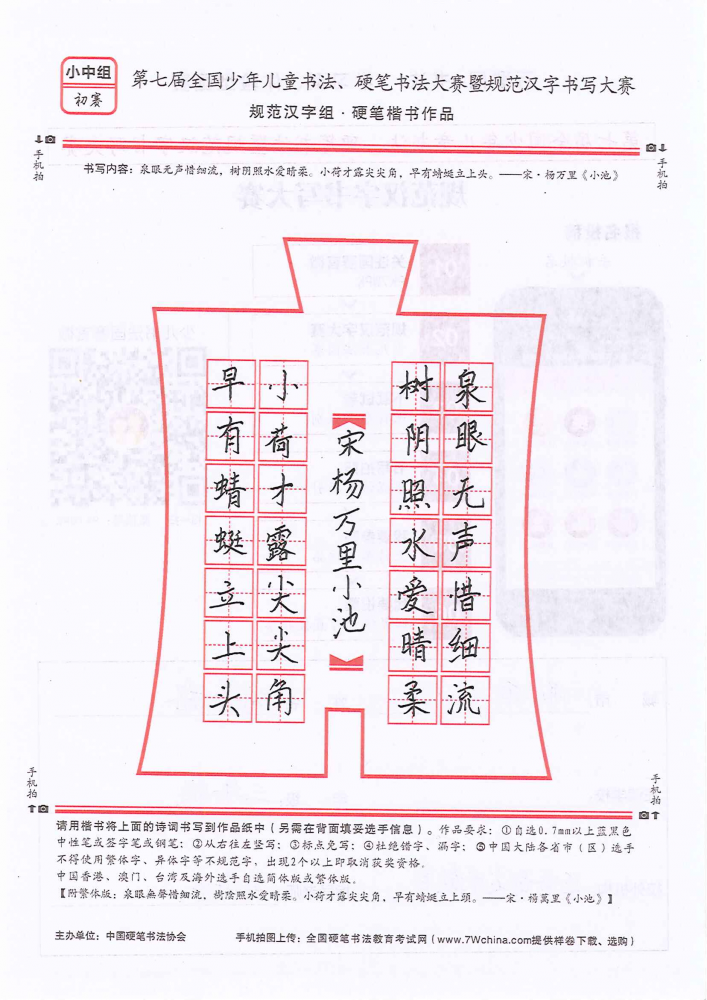 小中组
初赛
第七届全国少年儿童书法、硬笔书法大赛暨规范汉字书写大赛
规范汉字组·硬笔楷书作品
手机拍
手机拍
书写内容：泉眼无声惜细流，树阴照水爱晴柔。小荷才露尖尖角，早有蜻蜓立上头。——宋·杨万里《小池》
泉眼无声惜细流
树阴照水爱晴柔
宋杨万里小池
小荷才露尖尖角
早有蜻蜓立上头
手机拍
手机拍
请用楷书将上面的诗词书写到作品纸中（另需在背面填妥选手信息）。作品要求：①自选0.7mm以上蓝黑色
中性笔或签字笔或钢笔；②从右往左竖写；③标点免写；④杜绝错字、漏字；⑤中国大陆各省市（区）选手
不得使用繁体字、异体字等不规范字，出现2个以上即取消获奖资格。
中国香港、澳门、台湾及海外选手自选简体版或繁体版。
【附繁体版：泉眼無聲惜细流，樹陰照水爱晴柔。小荷才露尖尖角，早有蜻蜓立上頭。——宋·楊萬里《小池》】
主办单位：中国硬笔书法协会
手机拍图上传：全国硬笔书法教育考试网（www.7Wchina.com提供样卷下载、选购）